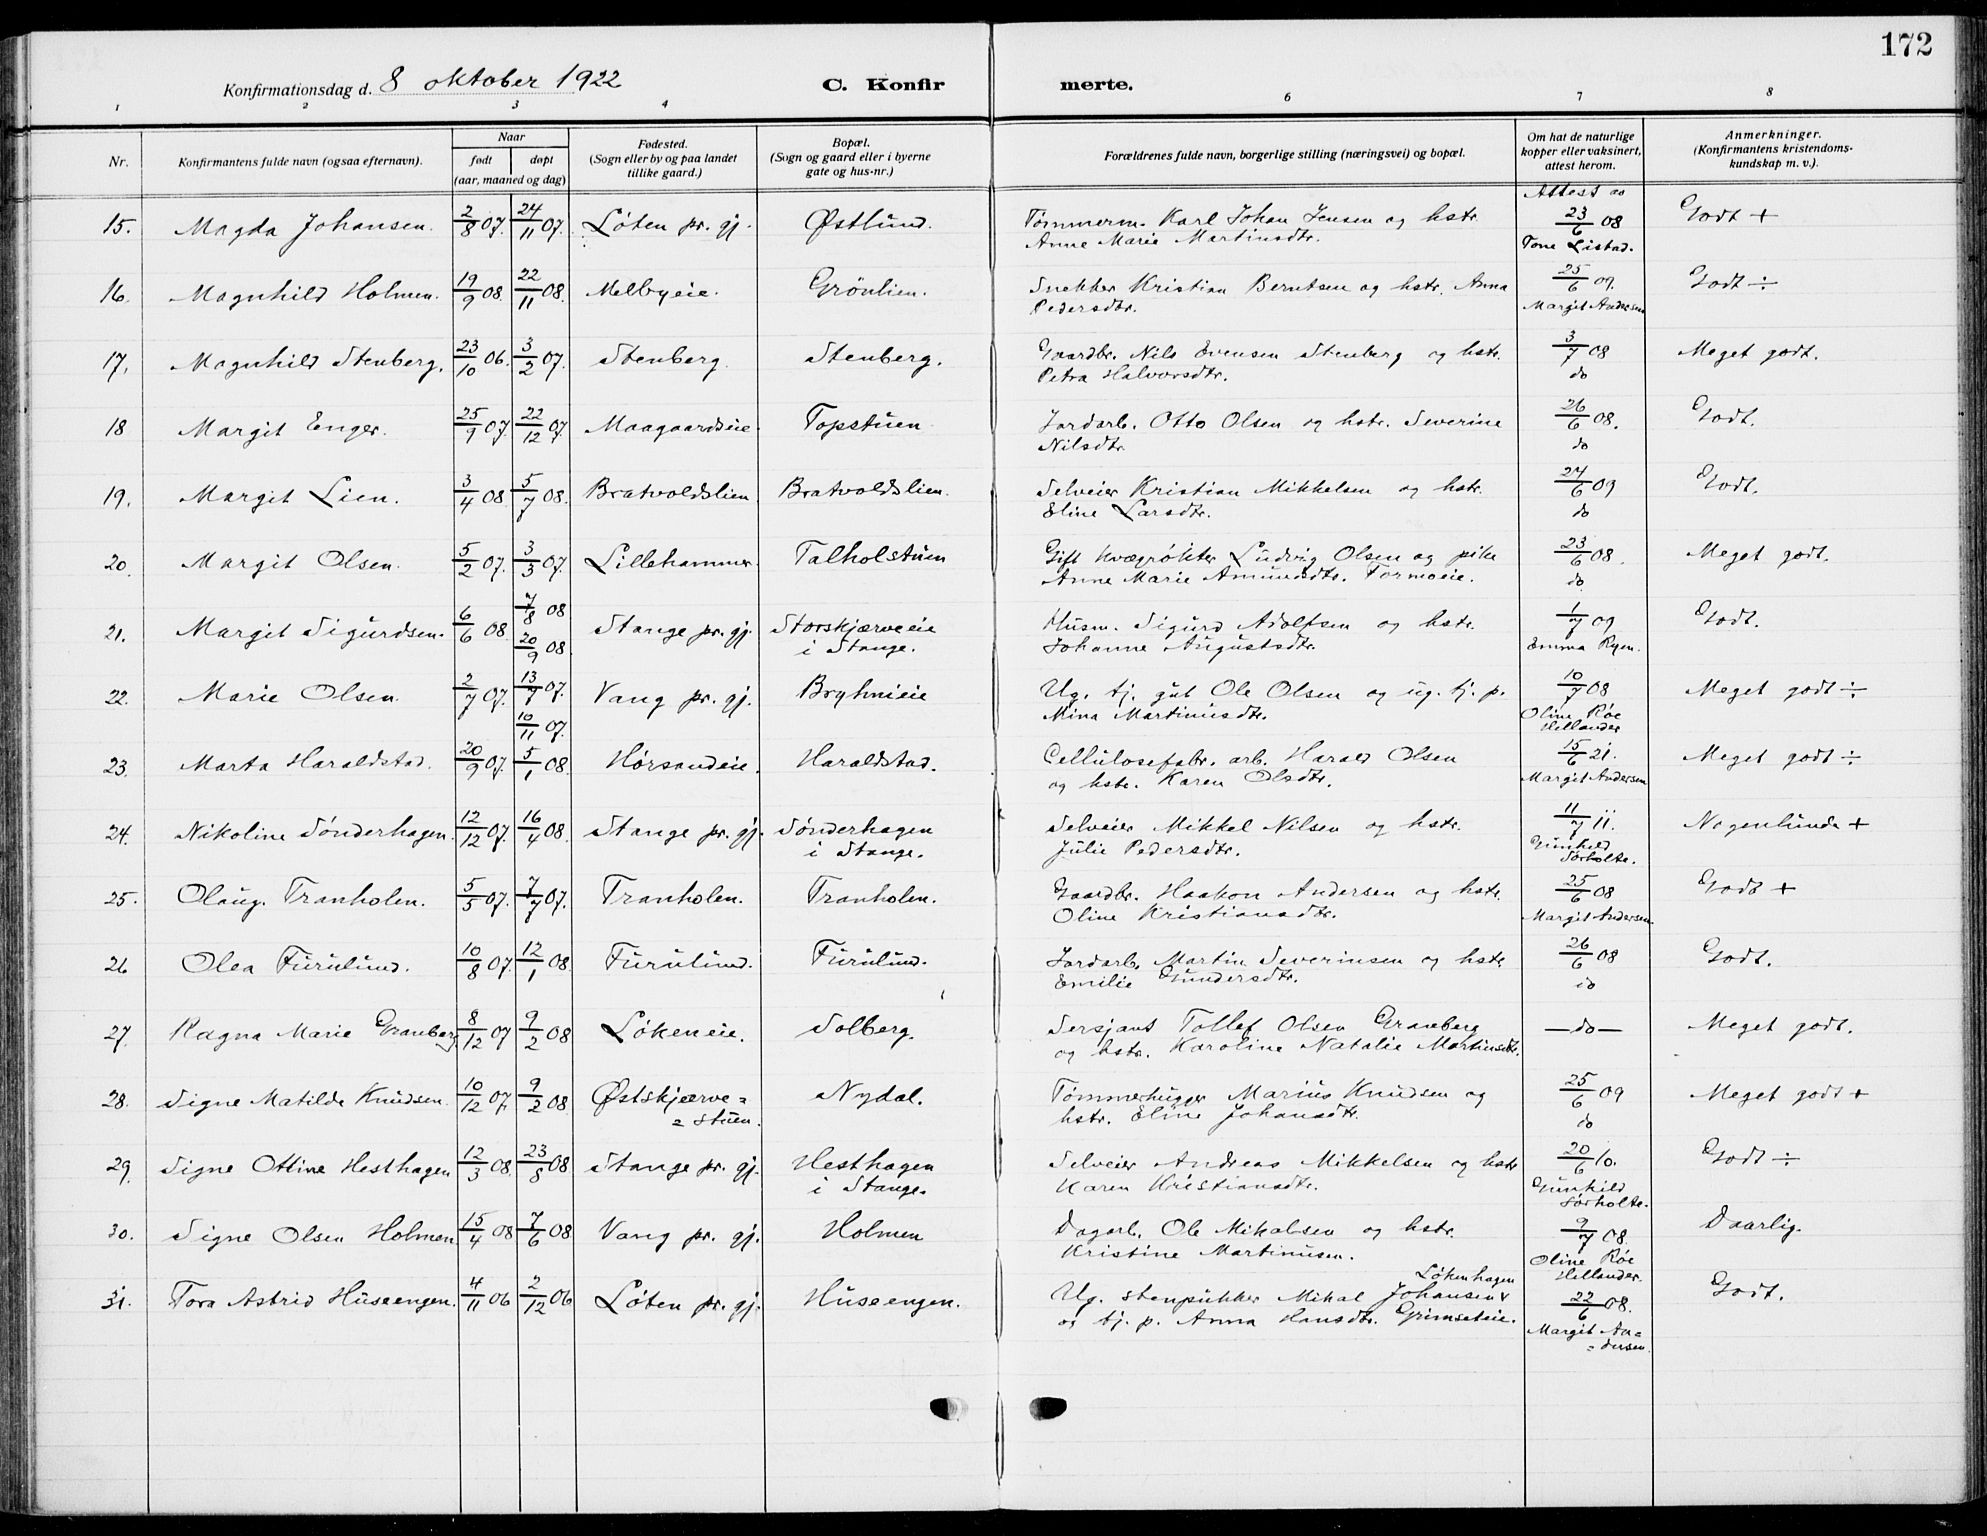 172
Konfirmationsdag d. 8 oktober 1922 C. Konfirmerte.
1 2 3 4 6 7 8
Nr. Konfirmantens fulde navn (ogsaa efternavn). Naar født døpt (aar, maaned og dag) Fødested. (Sogn eller by og paa landet tillike gaard.) Bopæl. (Sogn og gaard eller i byerne gate og hus-nr.) Forældrenes fulde navn, borgerlige stilling (næringsvei) og bopæl. Om hat de naturlige kopper eller vaksinert, attest herom. Anmerkninger. (Konfirmantens kristendomskundskap m. v.).
15. Magda Johansen. 2/8 07. 24/11 07. Løten pr. gj. Østlund. Tømmerm. Karl Johan Jensen og hstr. Anne Marie Martinsdtr. Attest av 23/6 08 Tone Listad. Godt +
16. Magnhild Holmen. 19/9 08. 22/11 08. Melbyeie. Grönlien. Snekker Kristian Berntsen og hstr. Anna Pedersdtr. 25/6 09. Margit Andersen Godt ÷
17. Magnhild Stenberg. 23/10 06. 3/2 07. Stenberg. Stenberg. Gaardbr. Nils Evensen Stenberg og hstr. Petra Halvorsdtr. 3/7 08 do Meget godt.
18 Margit Enger. 25/9 07. 22/12 07. Maagaardseie. Topstuen. Jordarb. Otto Olsen og hstr. Severine Nilsdtr. 26/6 08. do Godt.
19. Margit Lien. 3/4 08. 5/7 08. Bratvoldslien. Bratvoldslien. Selveier Kristian Mikkelsen og hstr. Eline Larsdtr. 24/6 09 do Godt.
20. Margit Olsen. 5/2 07. 3/3 07. Lillehammer. Talholstuen Gift kvægrökter Ludvig Olsen og pike Anne Marie Amundsdtr. Tormoeie. 23/6 08. do Meget godt.
21. Margit Sigurdsen. 6/6 08. 7/8 08 20/9 08. Stange pr. gj. Storskjærveeie i Stange. Husm. Sigurd Adolfsen og hstr. Johanne Augustsdtr. 1/7 09 Emma Ryen. Godt.
22. Marie Olsen. 2/7 07. 13/7 07. 10/11 07. Vang pr. gj. Bryhnieie Ug. tj. gut Ole Olsen og ug. tj. p. Mina Martinusdtr. 10/7 08 Oline Røe Hillander Meget godt ÷
23. Marta Haraldstad. 20/9 07. 5/1 08. Hörsandeie. Haraldstad. Cellulosefabr. arb. Harald Olsen og hstr. Karen Olsdtr. 15/6 21. Margit Andersen Meget godt ÷
24. Nikoline Sønderhagen. 12/12 07. 16/4 08. Stange pr. gj. Sønderhagen i Stange. Selveier Mikkel Nilsen og hstr. Julie Pedersdtr. 11/7 11. Gunhild Sörholte. Nogenlunde +
25. Olaug. Tranholen. 5/5 07. 7/7 07. Tranholen. Tranholen. Gaardbr. Haakon Andersen og hstr. Oline Kristiansdtr. 25/6 08 Margit Andersen Godt +
26 Olea Furulund. 10/8 07. 12/1 08. Furulund. Furulund. Jordarb. Martin Severinsen og hstr. Emilie Gundersdtr. 26/6 08 do Godt.
27. Ragna Marie Granberg. 8/12 07 9/2 08 Løkeneie. Solberg. Sersjant Tollef Olsen Granberg og hstr. Karoline Natalie Martinsdtr. —do— Meget godt.
28. Signe Matilde Knudsen. 10/12 07. 9/2 08 Østskjærve=stuen. Nydal. Tømmerhugger Marius Knudsen og hstr. Eline Johansdtr. 25/6 09 do Meget godt +
29. Signe Otline Hesthagen 12/3 08. 23/8 08 Stange pr. gj. Hesthagen i Stange. Selveier Andreas Mikkelsen og hstr Karen Kristiansdtr. 20/6 10. Gunhild Sørholte. Godt ÷
30. Signe Olsen Holmen 15/4 08 7/6 08 Vang pr. gj. Holmen Dagarb. Ole Mikalsen og hstr. Kristine Martinusen. 9/7 08. Oline Røe Hillander. Daarlig.
31. Tora Astrid Huseengen. 4/11 06 2/12 06 Løten pr. gj. Huseengen. Ug. stenpukker Mikal Johansen Løkenhagen og tj. p. Anna Hansdtr. Grimseteie. 22/6 08. Margit An=dersen. Godt.